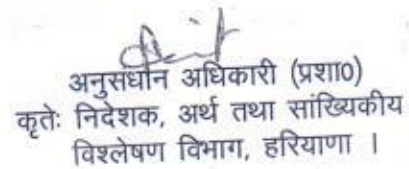 अनुसंधान अधिकारी (प्रशा0)
कृतेः निदेशक, अर्थ तथा सांख्यिकीय
विश्लेषण विभाग, हरियाणा ।